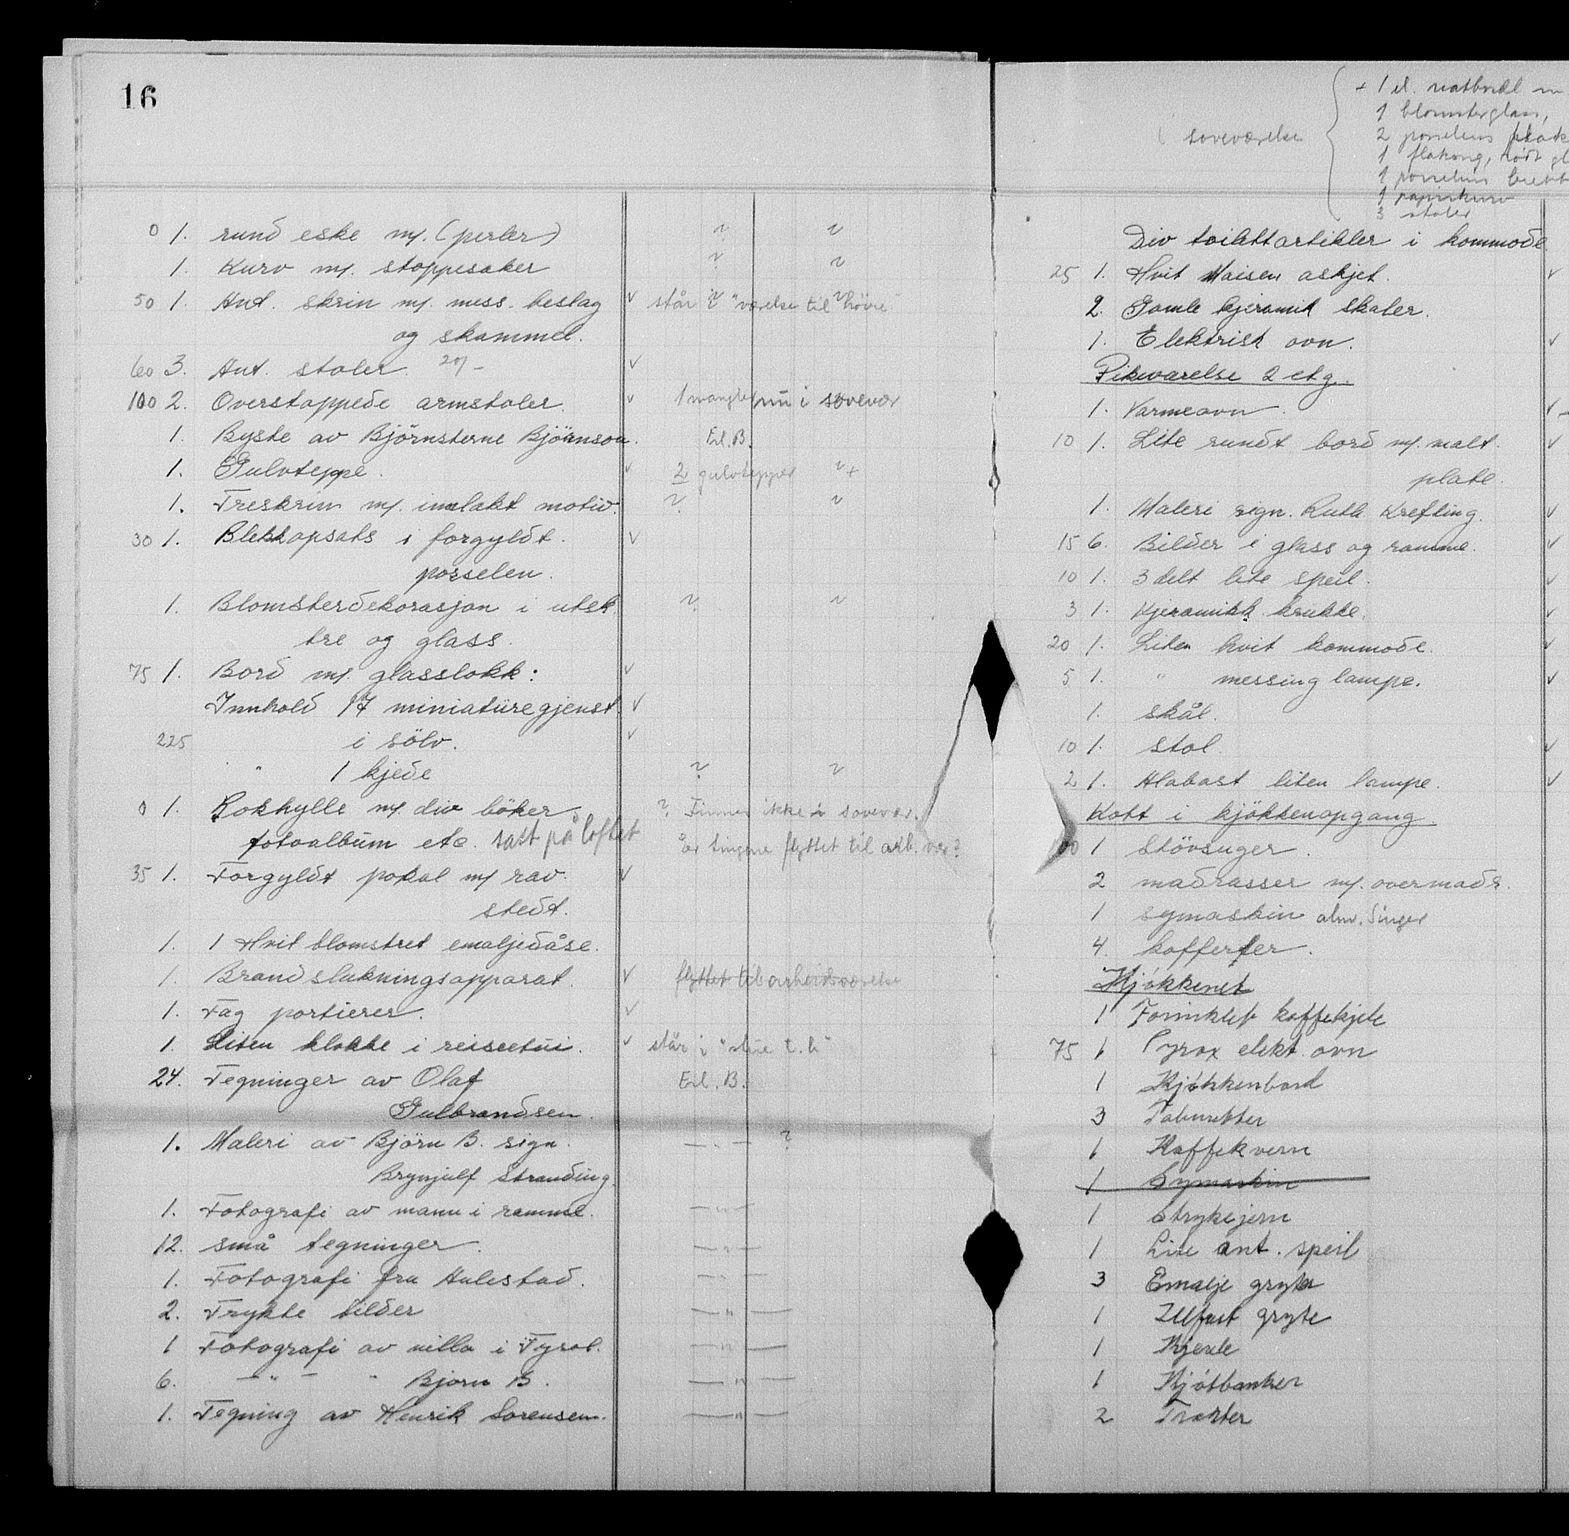 16
0 1. rund eske m/. (perler) ? ?
1. Kurv m/. stoppesaker ? ?
50 1. Ant. skrin m/. mess. beslag ✓ står i "værelse til høire"
og skammel.
60 3. Ant. stoler. 20/- ✓
100 2. Overstoppede armstoler. ✓ 1 mangler nu i sovevær
1. Byste av Björnsterne Björnson. Eil. B.
1. Gulvteppe. ✓ 2 gulvtepper ? +
1. Treskrin m/. innlakt motiv. ? ?
30 1. Blekkopsats i forgyldt. ✓
porselen.
1. Blomsterdekorasjon i utsk. ? ?
tre og glass.
75 1. Bord m/. glasslokk: ✓
Innhold 17 miniatüregjenst. ✓
225 i sölv. ✓
" 1 kjede ? ?
0 1. Bokhylle m/. div böker ? Finnes ikke i sovevær.
fotoalbum etc. satt på loftet Er tingene flyttet til arb. vær?
35 1. Forgyldt pokal m/ rav. ✓
stedt.
1. 1 Hvit blomstret emaljedåse.
1. Brandslukningsapparat. ✓ flyttet til arbeidsværelse
1. Fag portierer. ✓
1. Liten klokke i reiseetui. ✓ står i "stue t. h"
24. Tegninger av Olaf Eil. B.
Gulbrandsen.
1. Maleri av Björn B. sign. — " — ?
Brynjulf Stranding.
1. Fotografi av mann i ramme. — " —
12. små tegninger. — " —
1. Fotografi fra Aulestad. — " —
2. Trykte bilder — " —
1 Fotografi av villa i Tyrol. — " —
6. — " — " Bjørn B. — " —
1. Tegning av Henrik Sørensen. — " —
soveværelse
+ 1 el. natbord m
1 blomsterglass,
2 porselens
1 flakong, rødt gl
1 porselens
1 papirkurv
3 stoler
Div toilettartikler i kommode
25 1. Hvit Maisen askjet. ✓
2. Gamle kjeramik skaler.
1. Elektrisk ovn. ✓
Pikeværelse 2 etg.
1. Varmeovn. ✓
10 1. Lite rundt bord m/. malt. ✓
plate.
1. Maleri sign. Ruth Krefting. ✓
15 6. Bilder i glass og ramme. ✓
10 1. 3 delt lite speil. ✓
3 1. Kjeramikk krukke. ✓
20 1. Liten hvit kommode. ✓
5 1. " messing lampe. ✓
1. skål.
10 1. stol. ✓
2 1. Alabast liten lampe. ✓
Kott i kjökkenopgang.
1 Stövsuger.
2 madrasser m/. overmadr.
1 symaskin alm. Singer
4. kofferter.
Kjøkkenet
1 Forniklet kaffekjele
75 1 Pyrox elekt. ovn
1 Kjøkkenbord
3 Taburetter
1 Kaffekvern
1 Symaskin
1 Strykejern
1 Lite ant. speil
3 Emalje gryter
1 Ildfast gryte
1 Kjevle
1 Kjøtbanker
2 Trakter